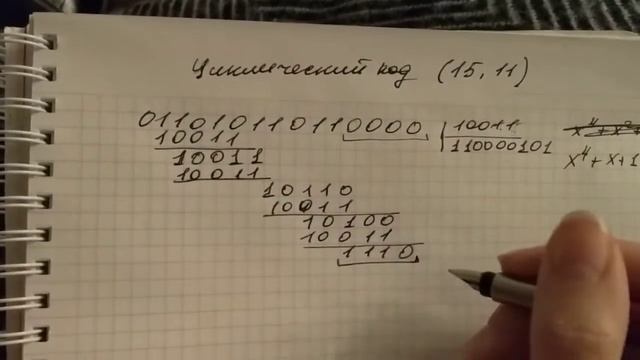 Циклический код (15, 11)
011010110110000 10011
10011 110000101
10011 x⁴+x+1
10011
10110
10011
10100
10011
1110